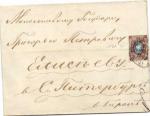 Милостивому Государю
Григорью Петровичу
Елисѣеву
въ С. Петербургѣ